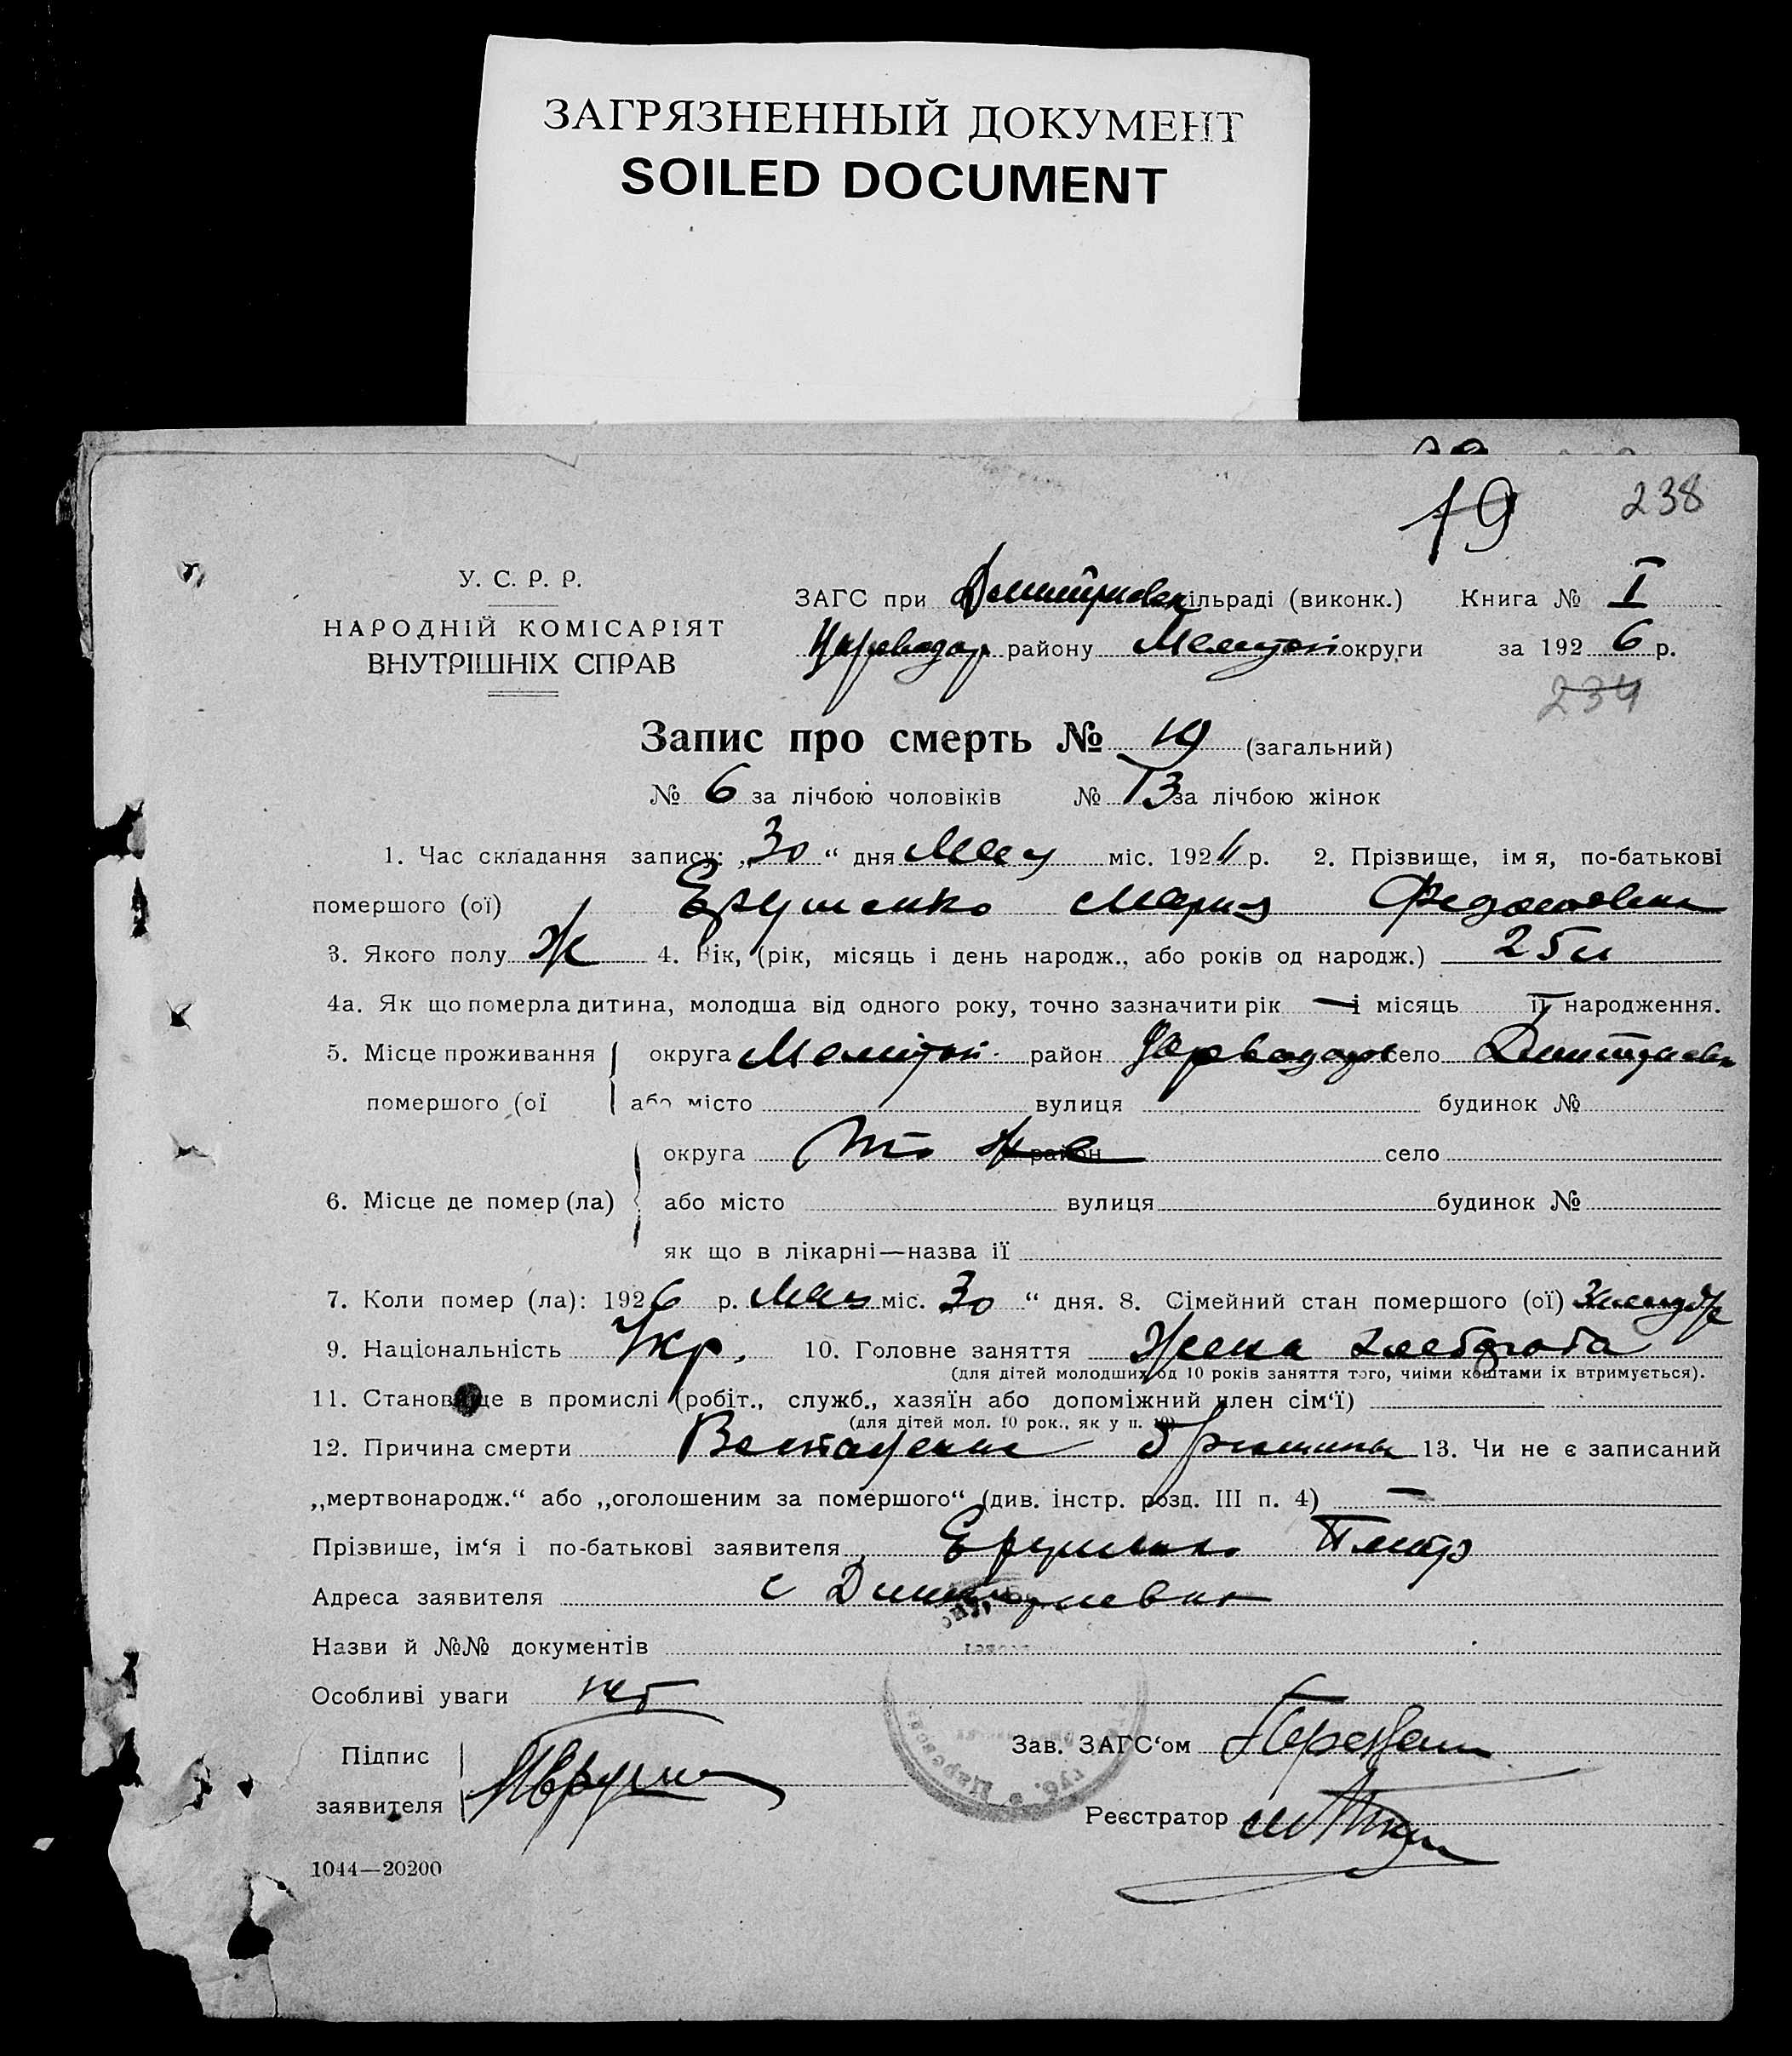 ЗАГРЯЗНЕННЫЙ ДОКУМЕНТ
SOILED DOCUMENT
19 238
У. С. Р. Р.
НАРОДНІЙ КОМІСАРІЯТ
ВНУТРІШНІХ СПРАВ
ЗАГС при Дмитриевск ільраді (виконк.) Книга № I
району округи за 1926 р.
234
Запис про смерть № 19 (загальний)
№ 6 за лічбою чоловіків № 13 за лічбою жінок
1. Час складання запису: „30“ дня Мая міс. 192 р. 2. Прізвище, ім я, по-батькові
помершого (ої) Ерушенко Мария
3. Якого полу Ж 4. Вік, (рік, місяць і день народж., або років од народж.) 25 л
4а. Як що померла дитина, молодша від одного року, точно зазначити рік — і місяць її народження.
5. Місце проживання округа Мелитоп. район село
помершого (ої або місто вулиця будинок №
округа То же район село
6. Місце де помер (ла) або місто вулиця будинок №
як що в лікарні—назва ії
7. Коли помер (ла): 1926 р. Мая міс. 30 “ дня. 8. Сімейний стан помершого (ої)
9. Національність Укр. 10. Головне заняття Жена хлебороба
(для дітей молодших од 10 років заняття того, чиїми коштами їх втримується).
11. Становище в промислі (робіт., служб., хазяїн або допоміжний член сім‘ї)
(для дітей мол. 10 рок., як у п. 10)
12. Причина смерти Воспаление брюшины 13. Чи не є записаний
„мертвонародж.“ або „оголошеним за помершого“ (див. інстр. розд. III п. 4) —
Прізвише, ім‘я і по-батькові заявителя Ерушенко Петр
Адреса заявителя с Дмитриевка
Назви й №№ документів
Особливі уваги нет
Підпис
заявителя
Зав. ЗАГС‘ом
Реєстратор
1044—20200